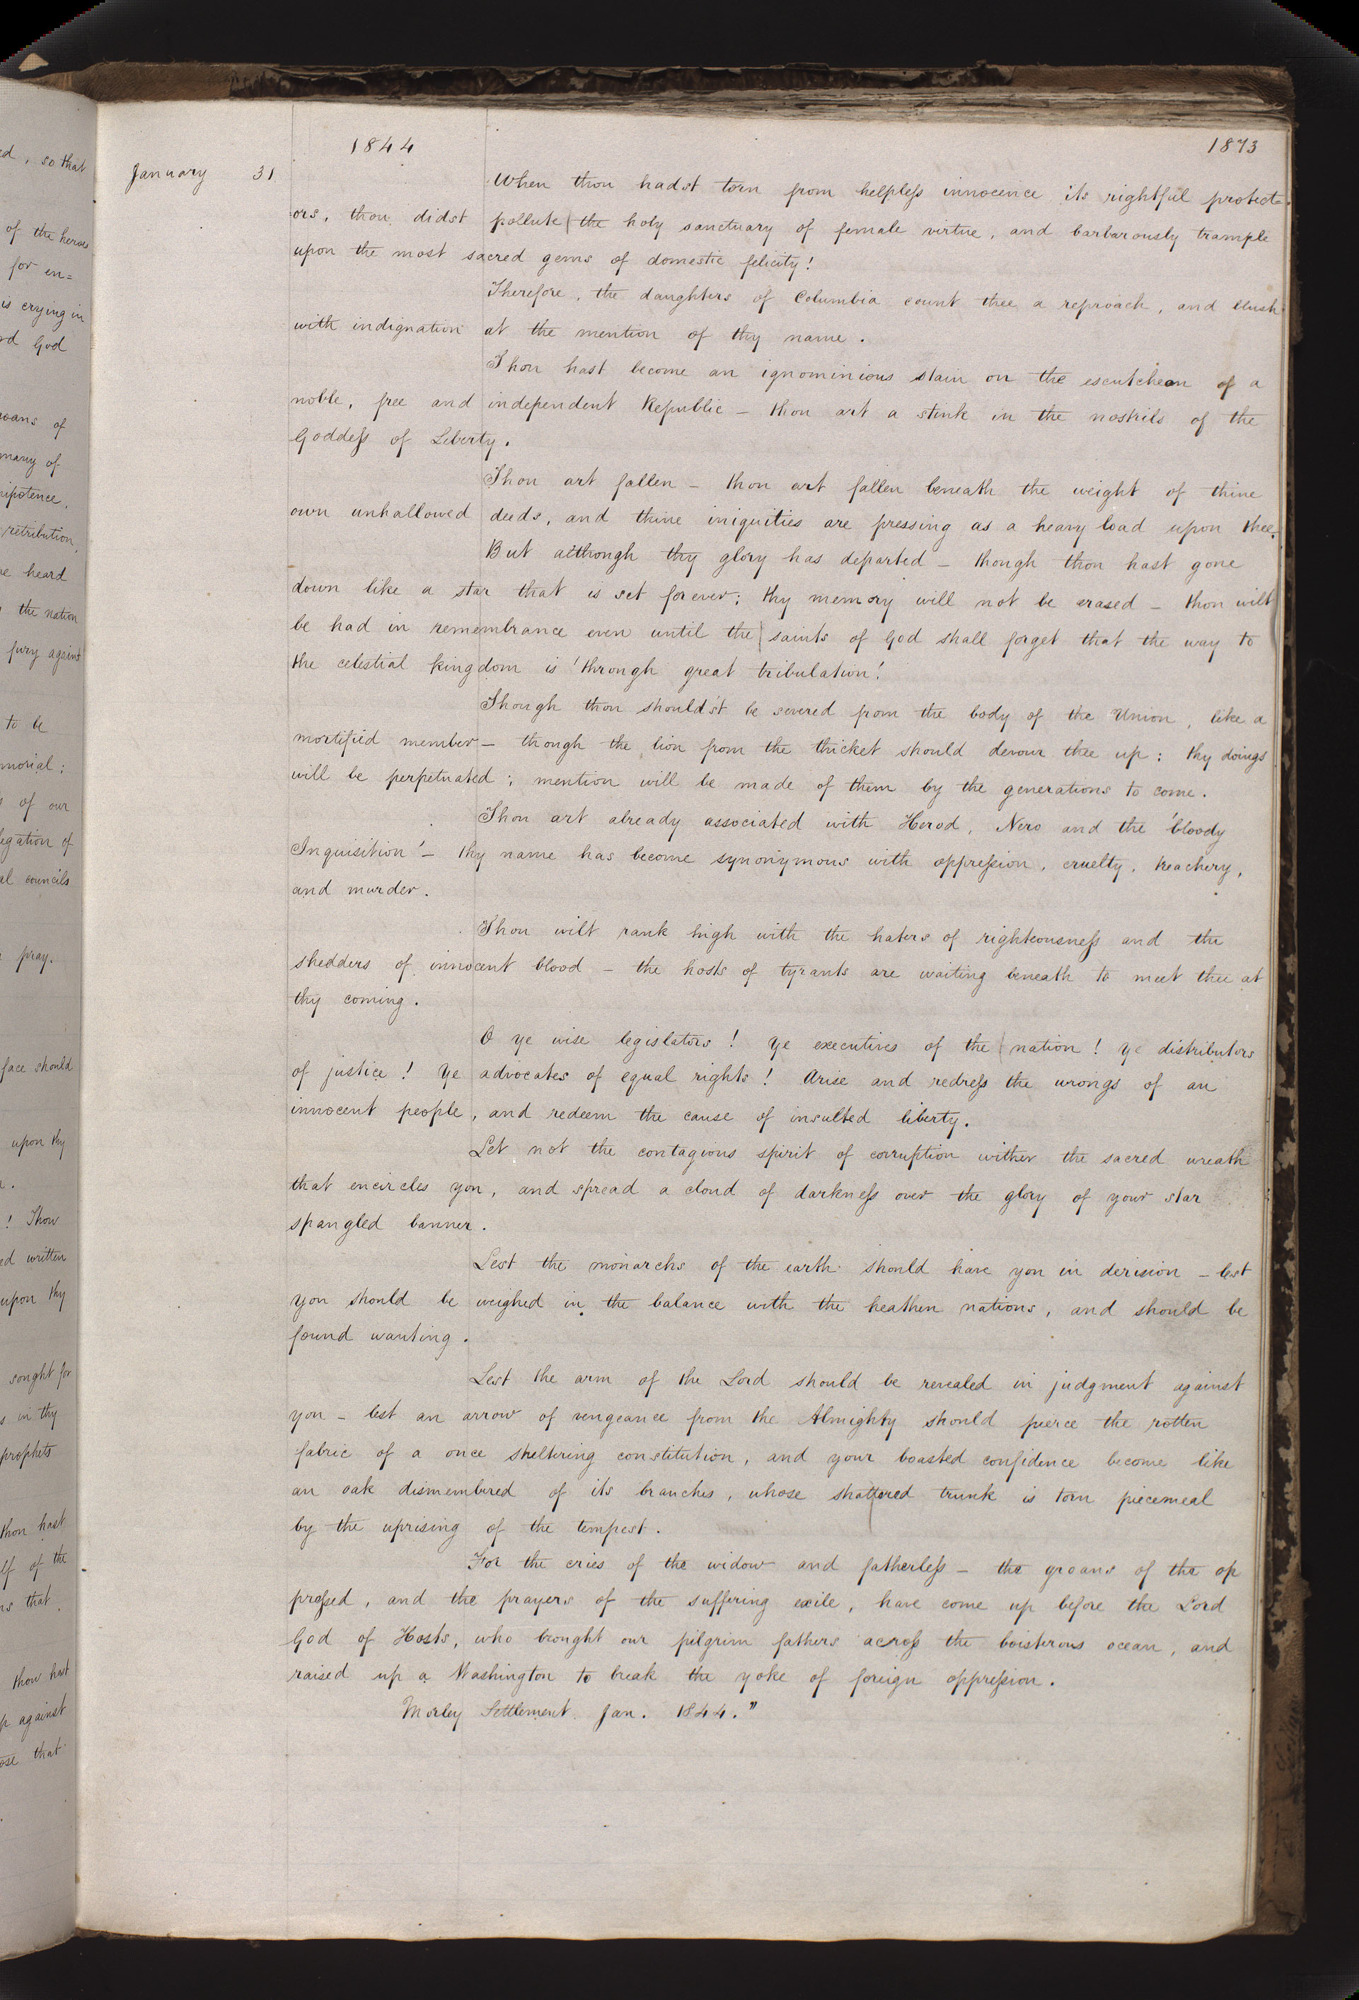 1844
1873
January 31
When thou hadst torn from helpless innocence its rightful protect=
ors, thou didst pollute the holy sanctuary of female virtue, and barbarously trample
upon the most sacred gems of domestic felicity!
Therefore, the daughters of Columbia count thee a reproach, and blush
with indignation at the mention of thy name.
Thou hast become an ignominious stain on the escutcheon of a
noble, free and independent Republic — thou art a stink in the nostrils of the
Goddess of Liberty.
Thou art fallen — thou art fallen beneath the weight of thine
own unhallowed deeds, and thine iniquities are pressing as a heavy load upon thee.
But although thy glory has departed — though thou hast gone
down like a star that is set forever; thy memory will not be erased — thou wilt
be had in remembrance even until the saints of God shall forget that the way to
the celestial kingdom is 'through great tribulation!'
Though thou should'st be severed from the body of the Union, like a
mortified member — though the lion from the thicket should devour thee up: thy doings
will be perpetuated; mention will be made of them by the generations to come.
Thou art already associated with Herod, Nero and the 'bloody
Inquisition' — thy name has become synonymous with oppression, cruelty, treachery,
and murder.
Thou wilt rank high with the haters of righteousness and the
shedders of innocent blood — the hosts of tyrants are waiting beneath to meet thee at
thy coming.
O ye wise legislators! ye executives of the nation! ye distributors
of justice! ye advocates of equal rights! Arise and redress the wrongs of an
innocent people, and redeem the cause of insulted liberty.
Let not the contagious spirit of corruption wither the sacred wreath
that encircles you, and spread a cloud of darkness over the glory of your star
spangled banner.
Lest the monarchs of the earth should have you in derision — lest
you should be weighed in the balance with the heathen nations, and should be
found wanting.
Lest the arm of the Lord should be revealed in judgment against
you — lest an arrow of vengeance from the Almighty should pierce the rotten
fabric of a once sheltering constitution, and your boasted confidence become like
an oak dismembered of its branches, whose shattered trunk is torn piecemeal
by the uprising of the tempest.
For the cries of the widow and fatherless — the groans of the op
pressed, and the prayers of the suffering exile, have come up before the Lord
God of Hosts, who brought our pilgrim fathers across the boisterous ocean, and
raised up a Washington to break the yoke of foreign oppression.
Morley Settlement Jan. 1844."